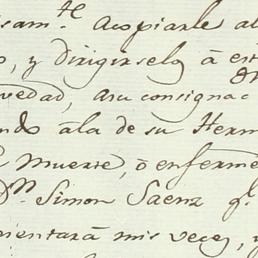 sam.te Acopiarle al
, y dirigirselo à est
vedad, asu consignac
ndo àla de su Herm
Muerte, ò enferme
Dn. Simon Saenz q.l
mentarà mis veces, y